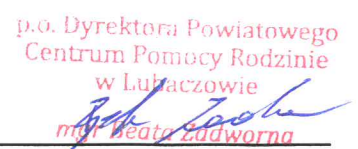 p.o. Dyrektora Powiatowego
Centrum Pomocy Rodzinie
w Lubaczowie
mgr Beata Zadworna